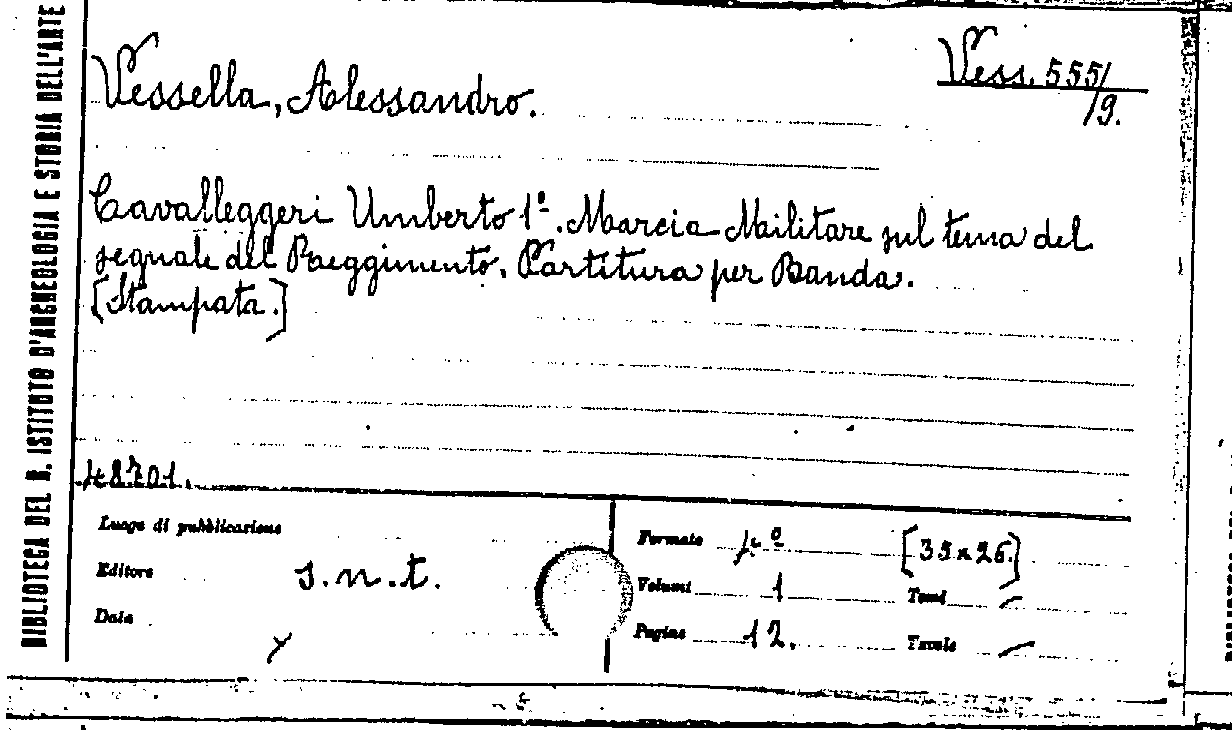 BIBLIOTECA DEL R. ISTITUTO D'ARCHEOLOGIA E STORIA DELL'ARTE
Vessella, Alessandro.
Vess. 555/
/9.
Cavalleggeri Umberto 1º. Marcia Militare sul tema del
segnale del Reggimento. Partitura per Banda.
[Stampata.]
48701.
Luogo di pubblicazione
Editore s.n.t.
Data
Formato 4º [35x26.]
Volumi 1 Tomi —
Pagine 12. Tavole —